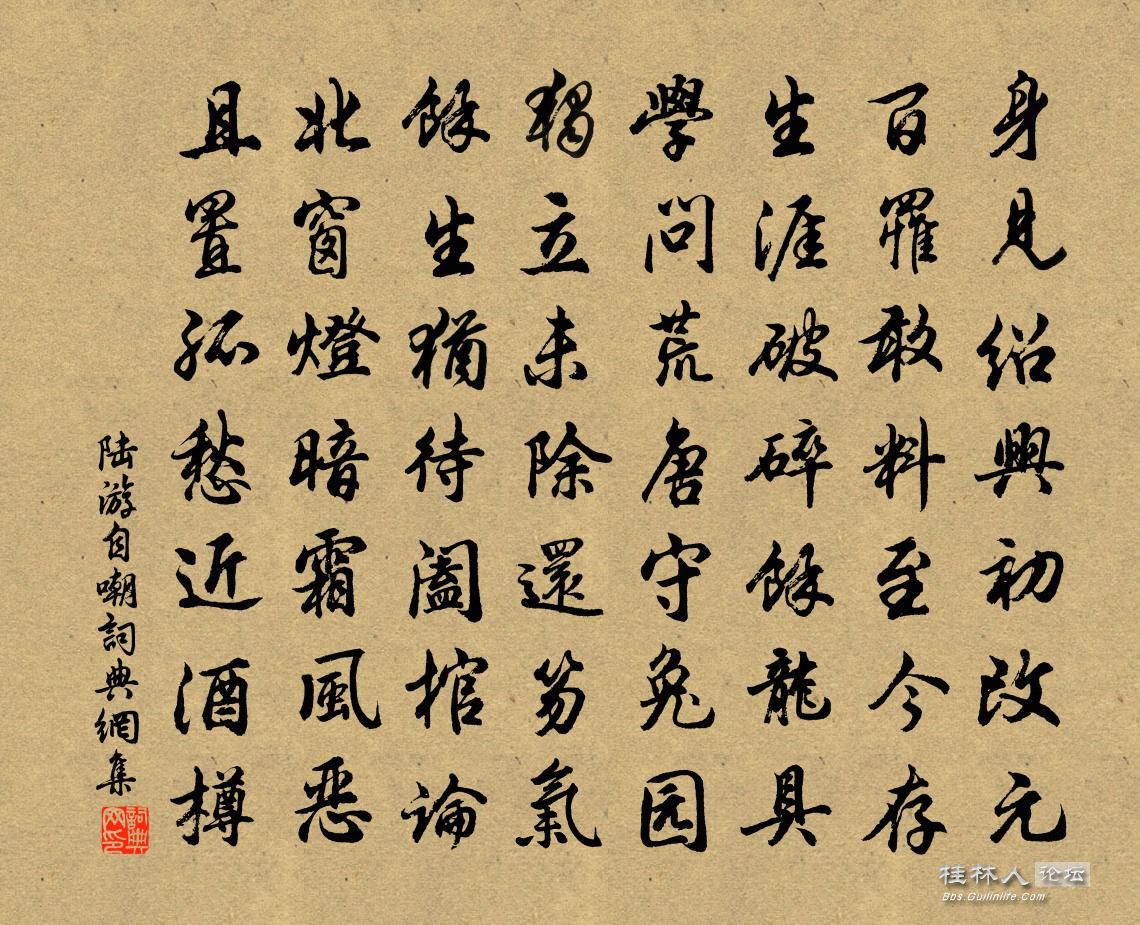 身見紹興初改元
百罹敢料至今存
生涯破碎餘龍具
學問荒唐守兔园
獨立未除還笏氣
餘生猶待闔棺論
北窗燈暗霜風惡
且置孤愁近酒樽
陆游自嘲詞典網集
詞典網印
桂林人论坛
Bbs.Guilinlife.Com